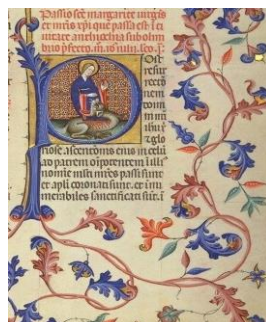 Passio sce margarite uirgis
et mris xpi que passa est i ci
uitate anthiochia sub olim
brio pfecto
Post
resur
rectō
nem
domi
ni
ihu x
glo
riose ascentonis eius in celū
ad patrem oīpotentem ī illiˀ
nomīe multi mres passi sunt
et apli coronati sunt. et inu
merabiles sanctificati sūt. ī